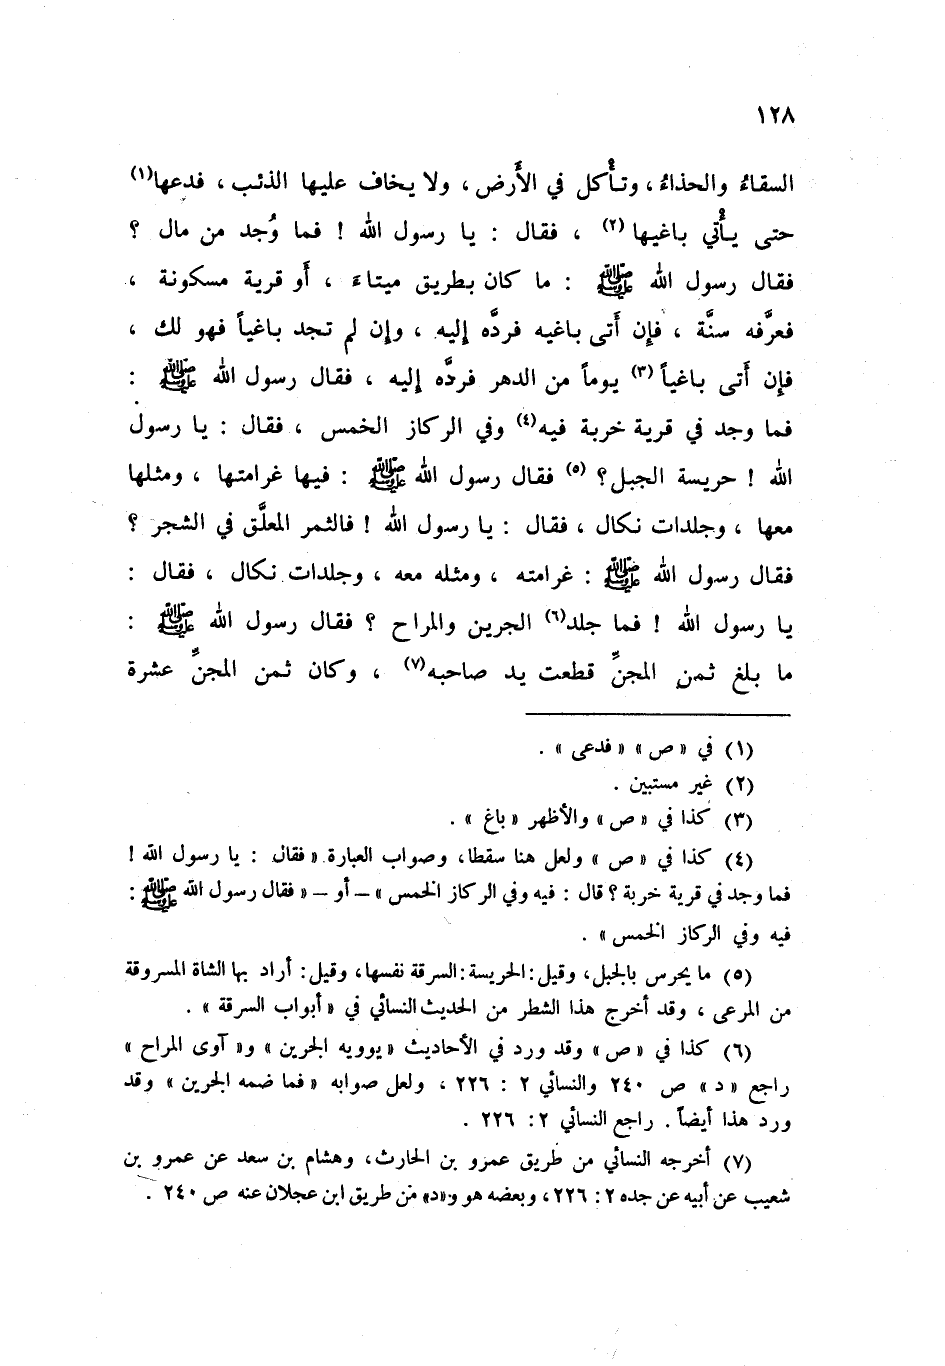 ١٢٨
السقاءُ والحذاءُ ، وتأْكل في الأَرض ، ولا يخاف عليها الذئب ، فدعها(١)
حتى يأْتي باغيها (٢) ، فقال : يا رسول الله ! فما وُجد من مال ؟
فقال رسول الله ﷺ : ما كان بطريق ميتاءَ ، أَو قرية مسكونة ،
فعرَّفه سنَّة ، فإِن أَتى باغيه فردَّه إليه ، وإِن لم تجد باغياً فهو لك ،
فإِن أَتى باغياً (٣) يوماً من الدهر فردَّه إليه ، فقال رسول الله ﷺ :
فما وجد في قرية خربة فيه(٤) وفي الركاز الخمس ، فقال : يا رسول
الله ! حريسة الجبل ؟ (٥) فقال رسول الله ﷺ : فيها غرامتها ، ومثلها
معها ، وجلدات نكال ، فقال : يا رسول الله ! فالثمر المعلَّق في الشجر ؟
فقال رسول الله ﷺ : غرامته ، ومثله معه ، وجلدات نكال ، فقال :
يا رسول الله ! فما جلد(٦) الجرين والمراح ؟ فقال رسول الله ﷺ :
ما بلغ ثمن المجنِّ قطعت يد صاحبه(٧) ، وكان ثمن المجنِّ عشرة
(١) في « ص » « فدعى » .
(٢) غير مستبين .
(٣) كذا في « ص » والأظهر « باغ » .
(٤) كذا في « ص » ولعل هنا سقطا، وصواب العبارة « فقال : يا رسول الله !
فما وجد في قرية خربة ؟ قال : فيه وفي الركاز الخمس » – أو – « فقال رسول الله ﷺ :
فيه وفي الركاز الخمس » .
(٥) ما يحرس بالجبل، وقيل : الحريسة : السرقة نفسها، وقيل : أراد بها الشاة المسروقة
من المرعى ، وقد أخرج هذا الشطر من الحديث النسائي في « أبواب السرقة » .
(٦) كذا في « ص » وقد ورد في الأحاديث « يوويه الجرين » و« آوى المراح »
راجع « د » ص ٢٤٠ والنسائي ٢ : ٢٢٦ ، ولعل صوابه « فما ضمه الجرين » وقد
ورد هذا أيضاً . راجع النسائي ٢ : ٢٢٦ .
(٧) أخرجه النسائي من طريق عمرو بن الحارث، وهشام بن سعد عن عمرو بن
شعيب عن أبيه عن جده ٢ : ٢٢٦ ، وبعضه هو و«د» من طريق ابن عجلان عنه ص ٢٤٠ .